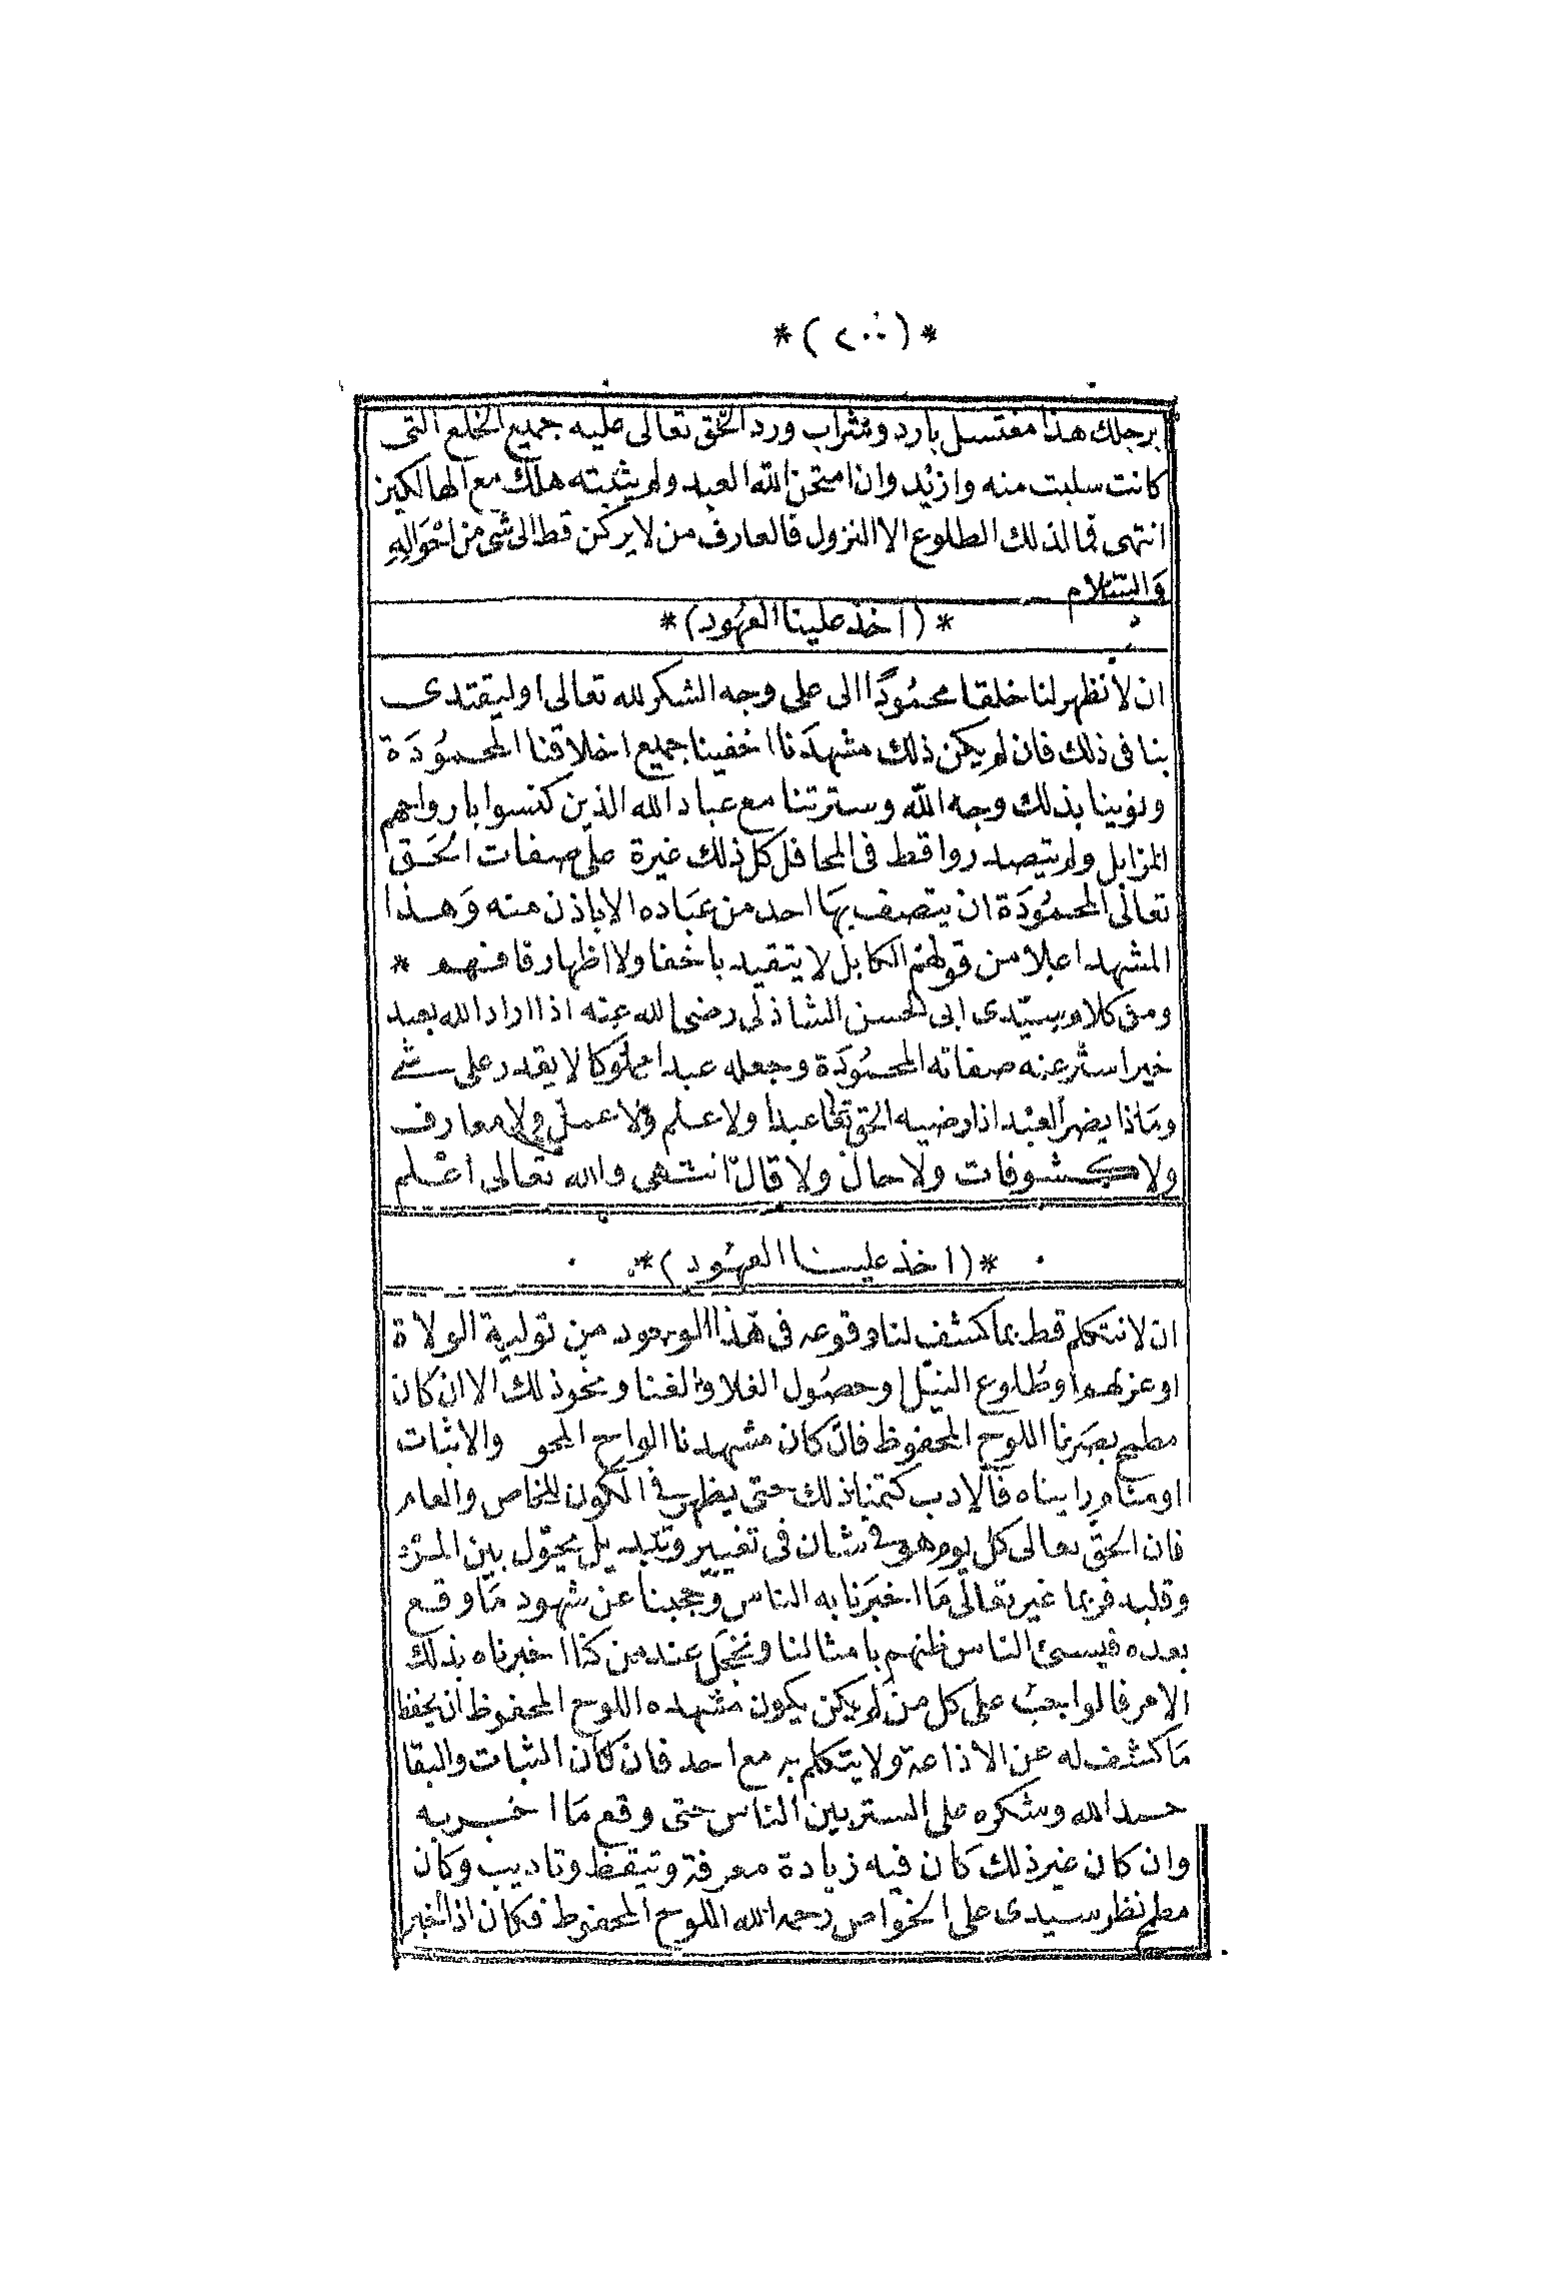 *(٢٠٠)*
برجلك هذا مغتسل بارد وشراب ورد الحق تعالى عليه جميع الخلع التى
كانت سلبت منه وازيد وان امتحن الله العبد ولم يثبته هلك مع الهالكين
انتهى فما لذلك الطلوع الا النزول فالعارف من لا يركن قط الى شى من احواله
والسلام
*(اخذ علينا العهود)*
ان لا نظهر لنا خلقا محمودا الى على وجه الشكر لله تعالى او ليقتدى
بنا فى ذلك فان لم يكن ذلك مشهدنا اخفينا جميع اخلاقنا المحمودة
ونوينا بذلك وجه الله وسترتنا مع عباد الله الذين كنسوا بارواحهم
المزابل ولم يتصدروا قط فى المحافل كل ذلك غيرة على صفات الحق
تعالى المحمودة ان يتصف بها احد من عباده الا باذن منه وهذا
المشهد اعلا من قولهم الكامل لا يتقيد باخفا ولا اظهار فافهم *
ومن كلام سيدى ابى الحسن الشاذلى رضى الله عنه اذا اراد الله بعبد
خيرا ستر عنه صفاته المحمودة وجعله عبدا مملوكا لا يقدر على شئ
وماذا يضر العبد اذا رضيه الحق تعا عبدا ولا علم ولا عمل ولا معارف
ولا كشوفات ولا حال ولا قال انتهى والله تعالى اعلم
*(اخذ علينا العهود)*
ان لا نتكلم قط بما كشف لنا وقوعه فى هذا الوجود من تولية الولاة
او عزلهم او طلوع النيل او حصول الغلا والفنا ونحو ذلك الا ان كان
مطمح بصرنا اللوح المحفوظ فان كان مشهدنا الواح المحو والاثبات
او منام رايناه فالادب كتمنا ذلك حتى يظهر فى الكون للخاص والعام
فان الحق تعالى كل يوم هو فى شان فى تغيير وتبديل يحول بين المرء
وقلبه فربما غير تعالى ما اخبرنا به الناس وحجبنا عن شهود ما وقع
بعده فيسئ الناس ظنهم بامثالنا ونخجل عند من كنا اخبرناه بذلك
الامر قالوا يجب على كل من لم يكن يكون مشهده اللوح المحفوظ ان يحفظ
ما كشف له عن الاذاعة ولا يتكلم به مع احد فان كان الثبات والبقا
حمد الله وشكره على الستر بين الناس حتى وقع ما اخبر به
وان كان غير ذلك كان فيه زيادة معرفة وتيقظ وتاديب وكان
مطمح نظر سيدى على الخواص رحمه الله اللوح المحفوظ فكان اذا اخبر